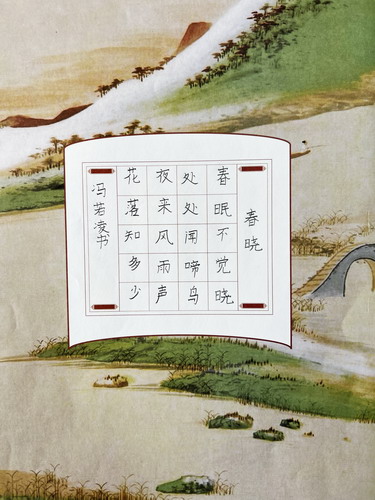 春晓
春眠不觉晓
处处闻啼鸟
夜来风雨声
花落知多少
冯若凌书